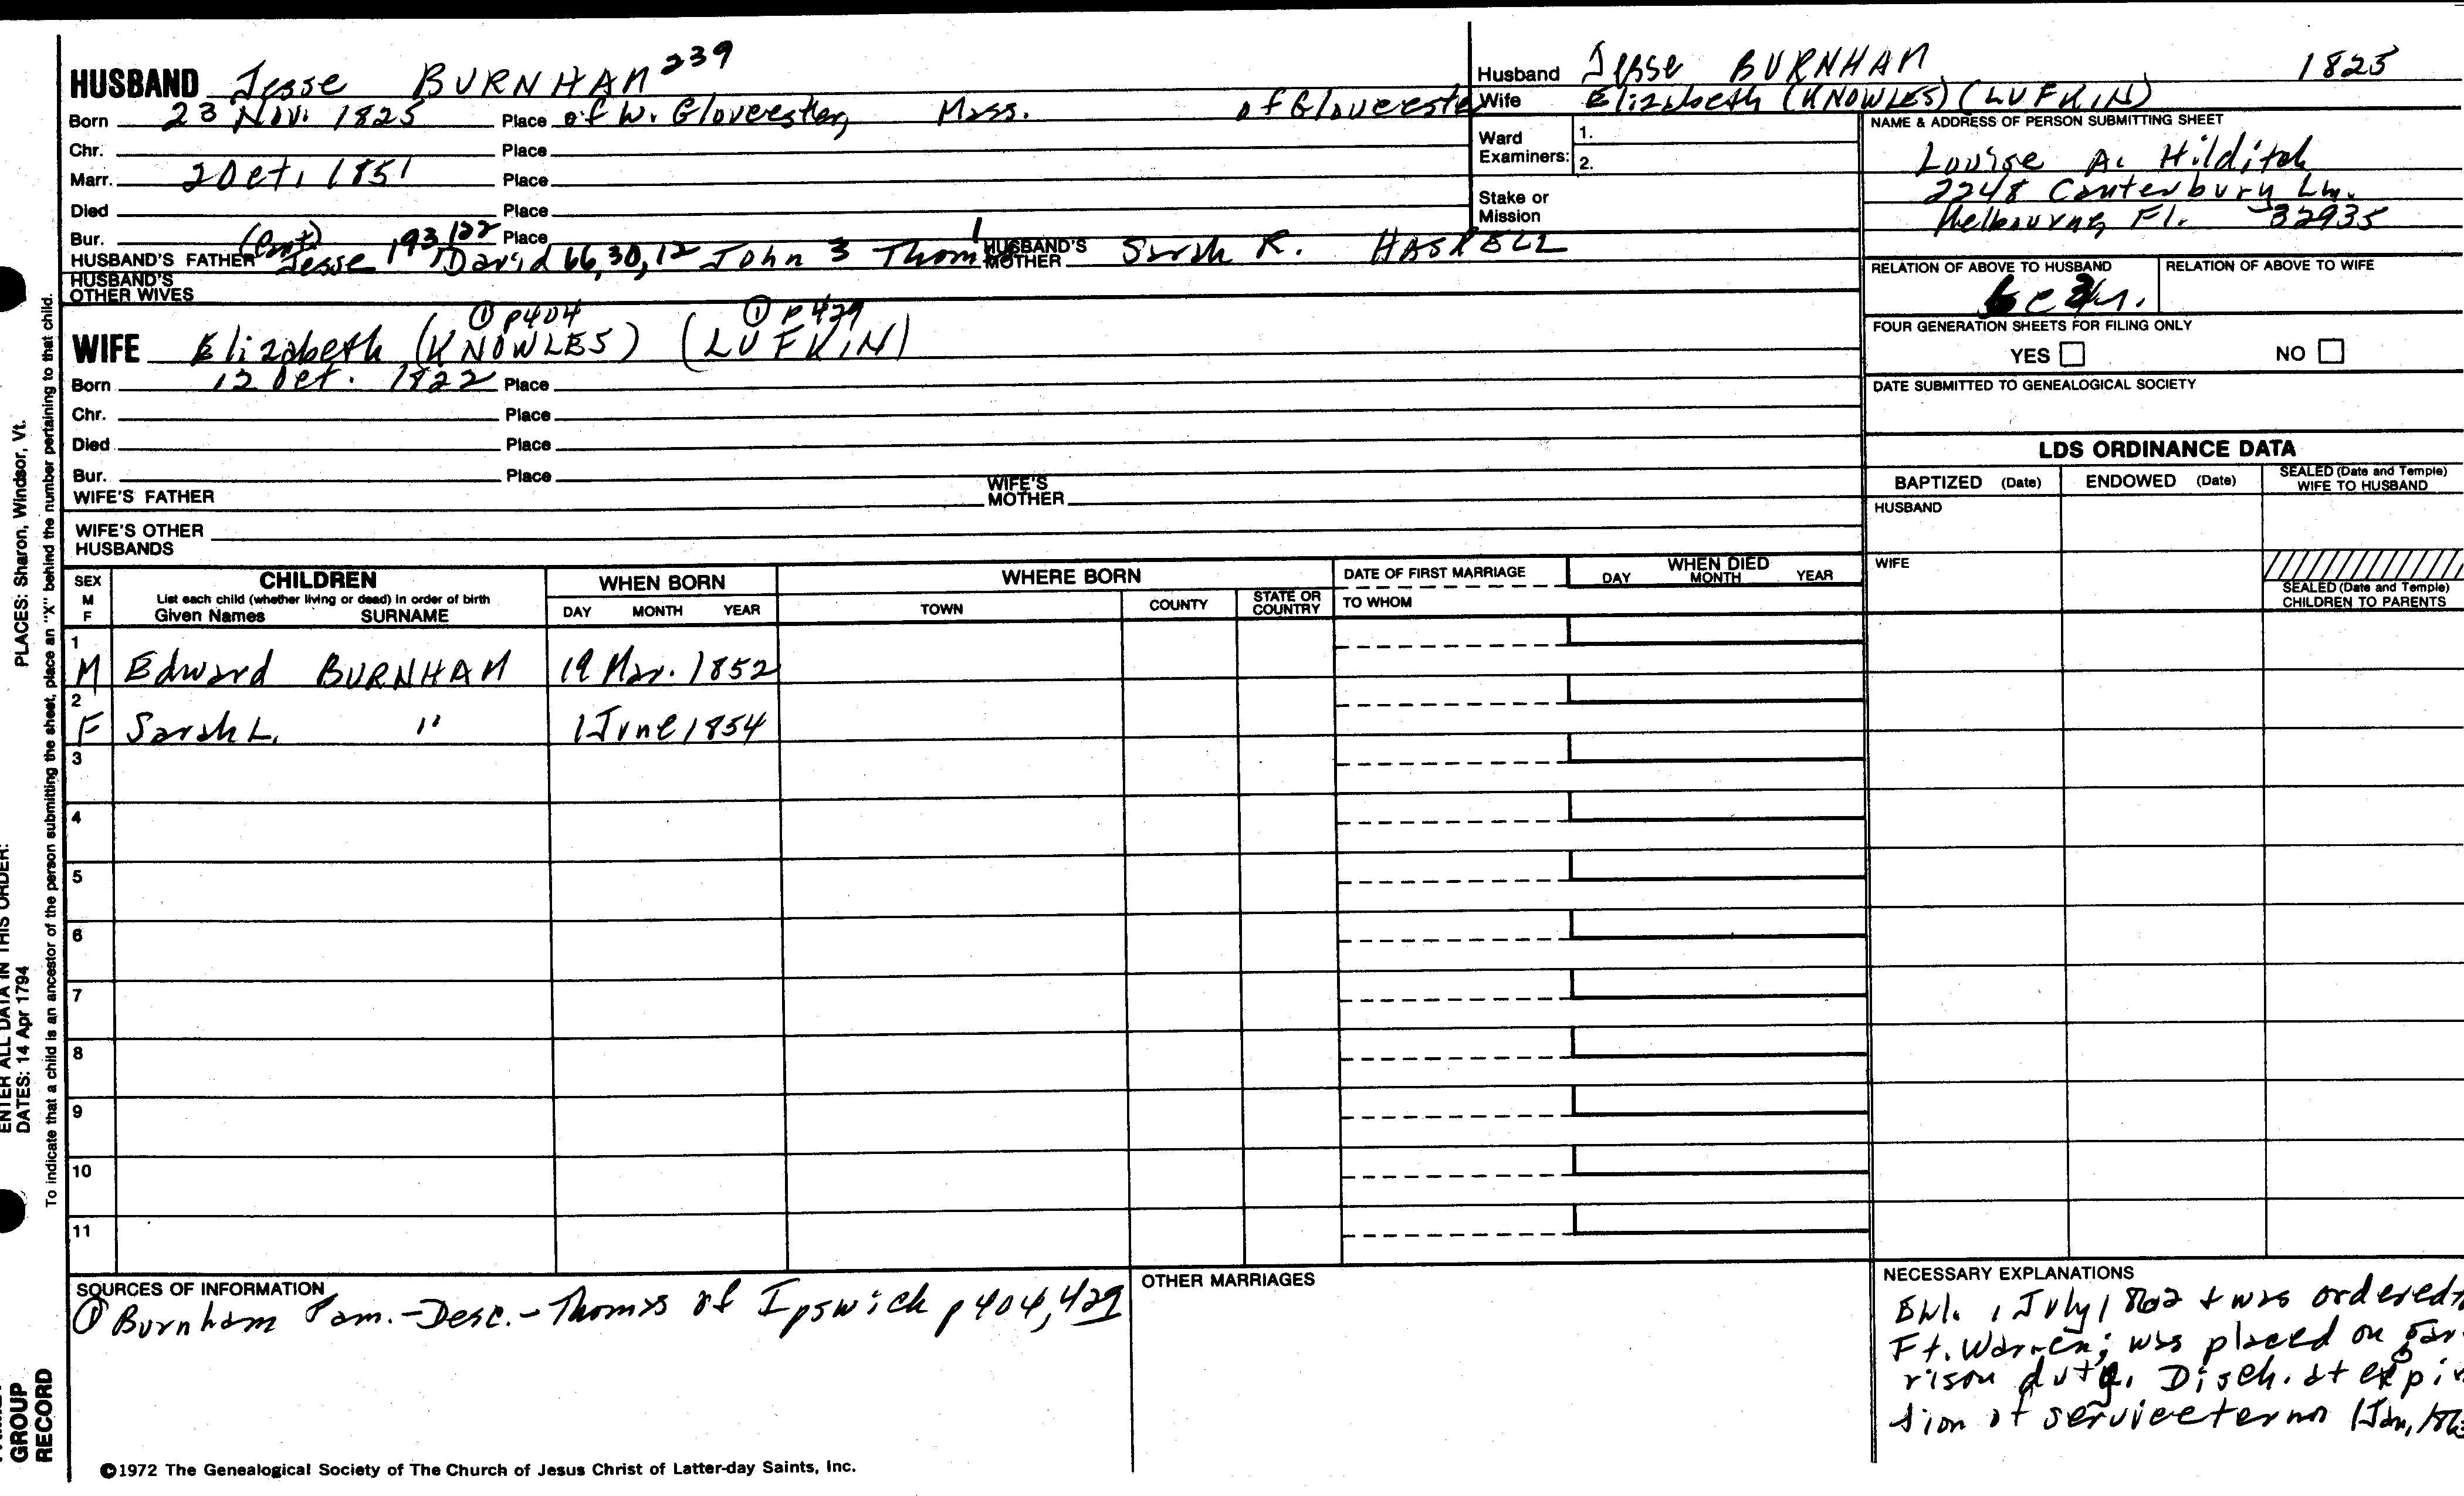 HUSBAND Jesse BURNHAM 239
Born 23 Nov. 1825 Place of W. Gloucester, Mass. of Gloucester
Chr. Place
Marr. 2 Oct, 1851 Place
Died Place
Bur. Place
HUSBAND'S FATHER (Capt) Jesse 193,122 David 66,30,12 John 3 Thom 1 HUSBAND'S MOTHER Sarah R. HASKELL
HUSBAND'S OTHER WIVES
① p404 ① p429
WIFE Elizabeth (KNOWLES) (LUFKIN)
Born 12 Oct. 1822 Place
Chr. Place
Died Place
Bur. Place
WIFE'S FATHER WIFE'S MOTHER
WIFE'S OTHER HUSBANDS
Husband Jesse BURNHAM 1825
Wife Elizabeth (KNOWLES) (LUFKIN)
Ward Examiners: 1.
2.
Stake or Mission
NAME & ADDRESS OF PERSON SUBMITTING SHEET
Louise A. Hilditch
2248 Canterbury Ln.
Melbourne, Fl. 32935
RELATION OF ABOVE TO HUSBAND RELATION OF ABOVE TO WIFE
FOUR GENERATION SHEETS FOR FILING ONLY
YES NO
DATE SUBMITTED TO GENEALOGICAL SOCIETY
LDS ORDINANCE DATA
BAPTIZED (Date) ENDOWED (Date) SEALED (Date and Temple) WIFE TO HUSBAND
HUSBAND
WIFE
SEALED (Date and Temple) CHILDREN TO PARENTS
SEX M F CHILDREN List each child (whether living or dead) in order of birth Given Names SURNAME WHEN BORN DAY MONTH YEAR WHERE BORN TOWN COUNTY STATE OR COUNTRY DATE OF FIRST MARRIAGE TO WHOM WHEN DIED DAY MONTH YEAR
1 M Edward BURNHAM 19 Mar. 1852
2 F Sarah L. " 1 June 1854
3
4
5
6
7
8
9
10
11
SOURCES OF INFORMATION
① Burnham Fam.-Desc.-Thomas of Ipswich p404,429
OTHER MARRIAGES
NECESSARY EXPLANATIONS
Enl. 1 July 1862 & was ordered
Ft. Warren; was placed on gar-
rison duty. Disch. at expir
tion of service term 1 Jan, 186
©1972 The Genealogical Society of The Church of Jesus Christ of Latter-day Saints, Inc.
PLACES: Sharon, Windsor, Vt.
ENTER ALL DATA IN THIS ORDER:
DATES: 14 Apr 1794
To indicate that a child is an ancestor of the person submitting the sheet, place an "X" behind the number pertaining to that child.
GROUP
RECORD